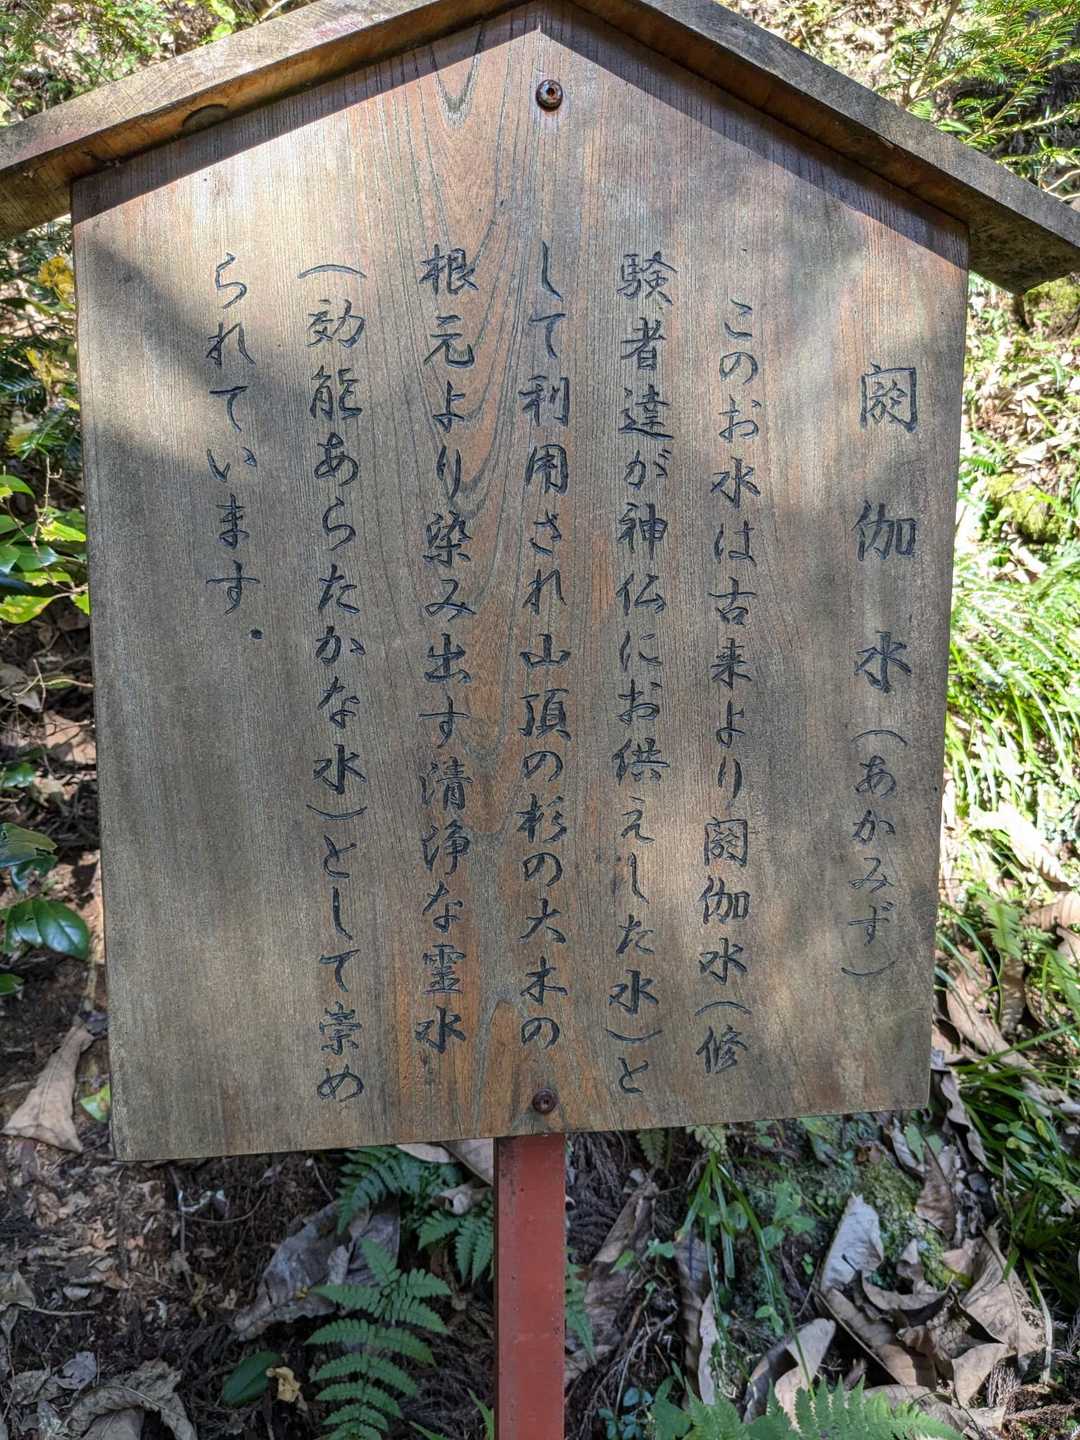 閼伽水(あかみず)
このお水は古来より閼伽水(修
験者達が神仏にお供えした水)と
して利用され山頂の杉の大木の
根元より染み出す清浄な霊水
(効能あらたかな水)として崇め
られています.